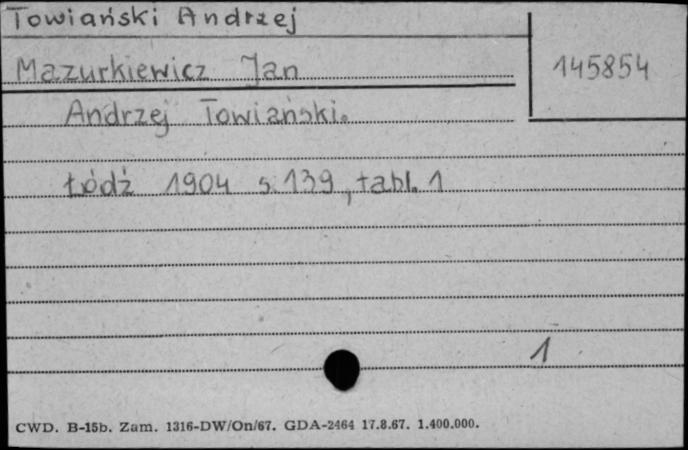 Towiański Andrzej
Mazurkiewicz Jan
145854
Andrzej Towiański.
Łódź 1904 s. 139, tabl. 1
1
CWD. B-15b. Zam. 1316-DW/On/67. GDA-2464 17.8.67. 1.400.000.